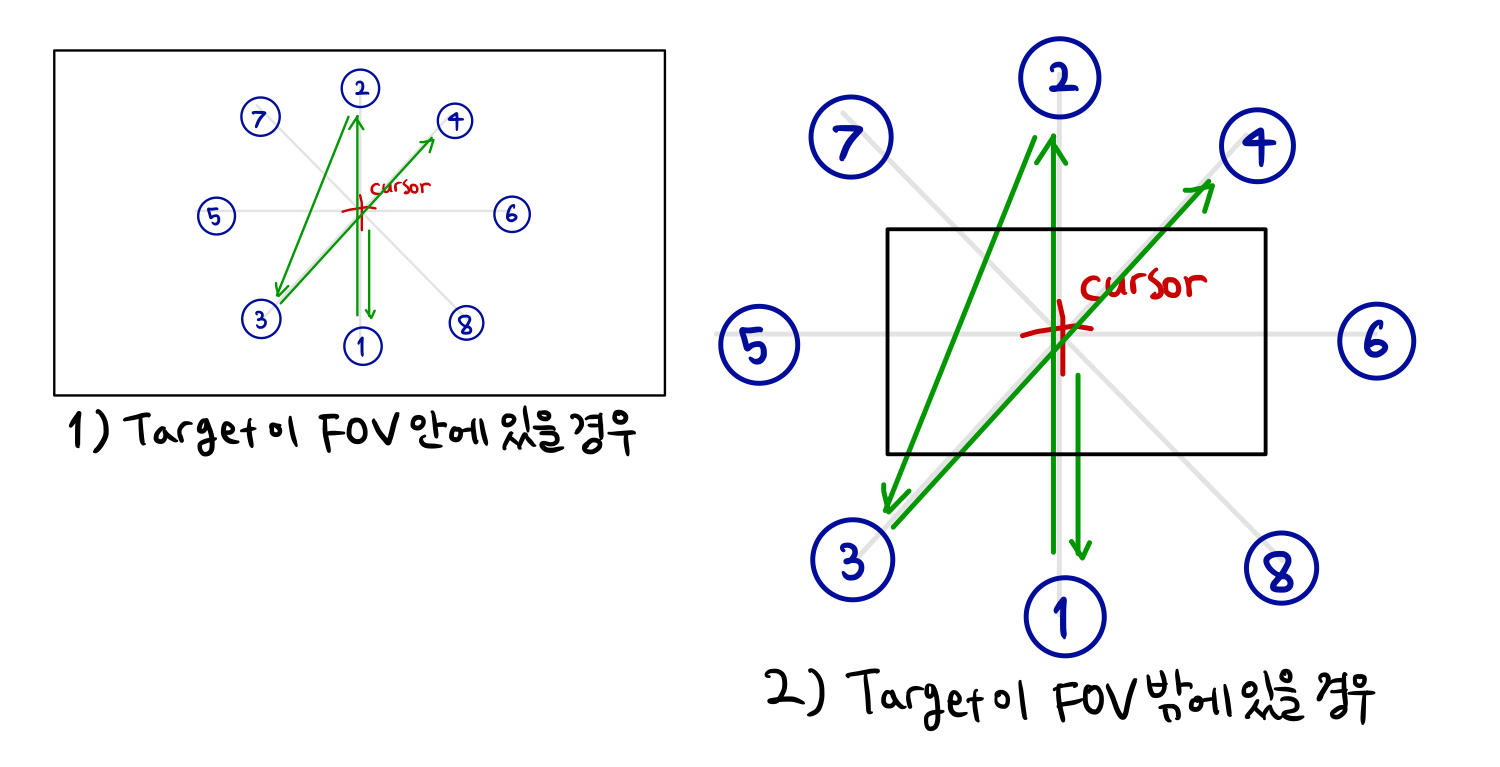 2
7
4
cursor
5
6
3
8
1
1) Target이 FOV 안에 있을 경우
2
7
4
cursor
5
6
3
8
1
2) Target이 FOV 밖에 있을 경우